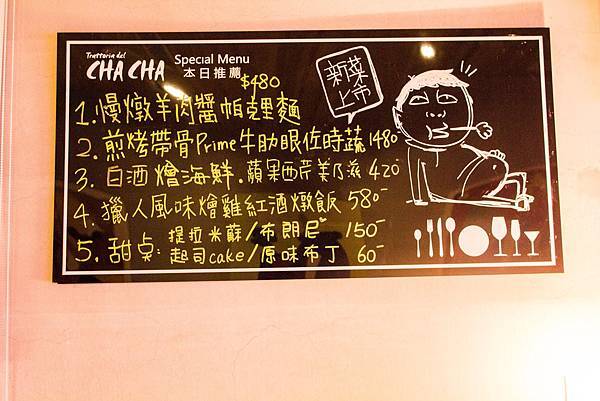 Trattoria del
CHA CHA
Special Menu
本日推薦
新菜
上市
$480
1.慢燉羊肉醬帕克里麵
2.煎烤帶骨Prime牛肋眼佐時蔬1480
3.白酒燴海鮮.蘋果西芹美乃滋420-
4.獵人風味燴雞紅酒燉飯580-
5.甜点:提拉米蘇/布朗尼150-
起司cake/原味布丁60-